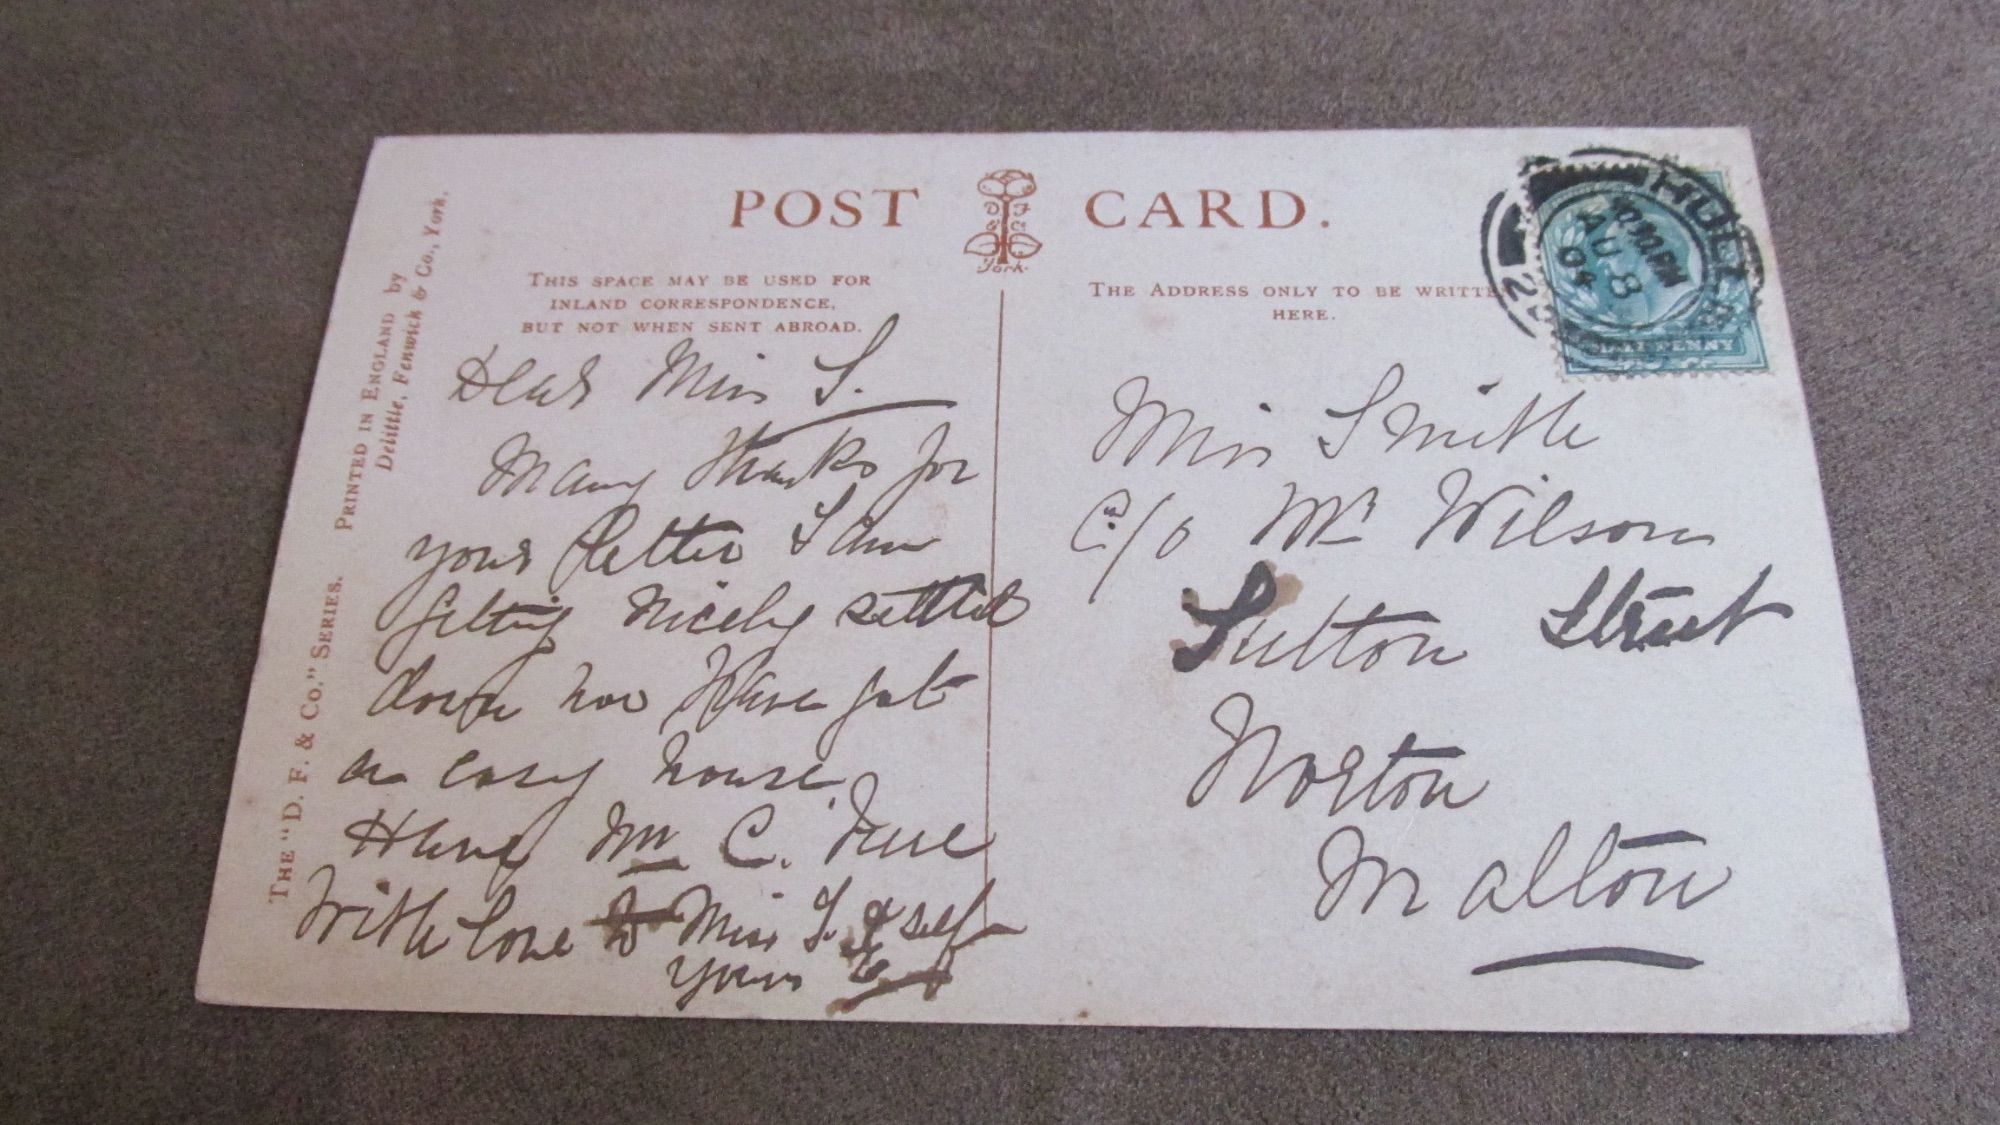 POST CARD.
D F & Co.
York.
THIS SPACE MAY BE USED FOR
INLAND CORRESPONDENCE,
BUT NOT WHEN SENT ABROAD.
THE ADDRESS ONLY TO BE WRITTE
HERE.
THE "D. F. & CO." SERIES. PRINTED IN ENGLAND by
Delittle, Fenwick & Co., York.
HULL
10 PM
AU 8
04
Dear Miss S.
Many thanks for
your letter I am
getting nicely settled
down now Have got
an easy house.
Mrs C. here
With love to Miss S. & self
yours
Miss Smith
C/o Mr Wilson
Sutton Street
Norton
Malton